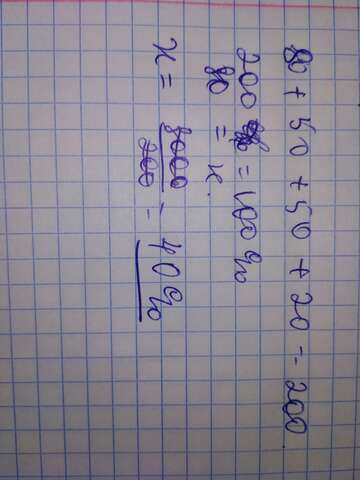 80 + 50 + 50 + 20 = 200.
200 = 100%
80 = x.
x = 8000/200 = 40%